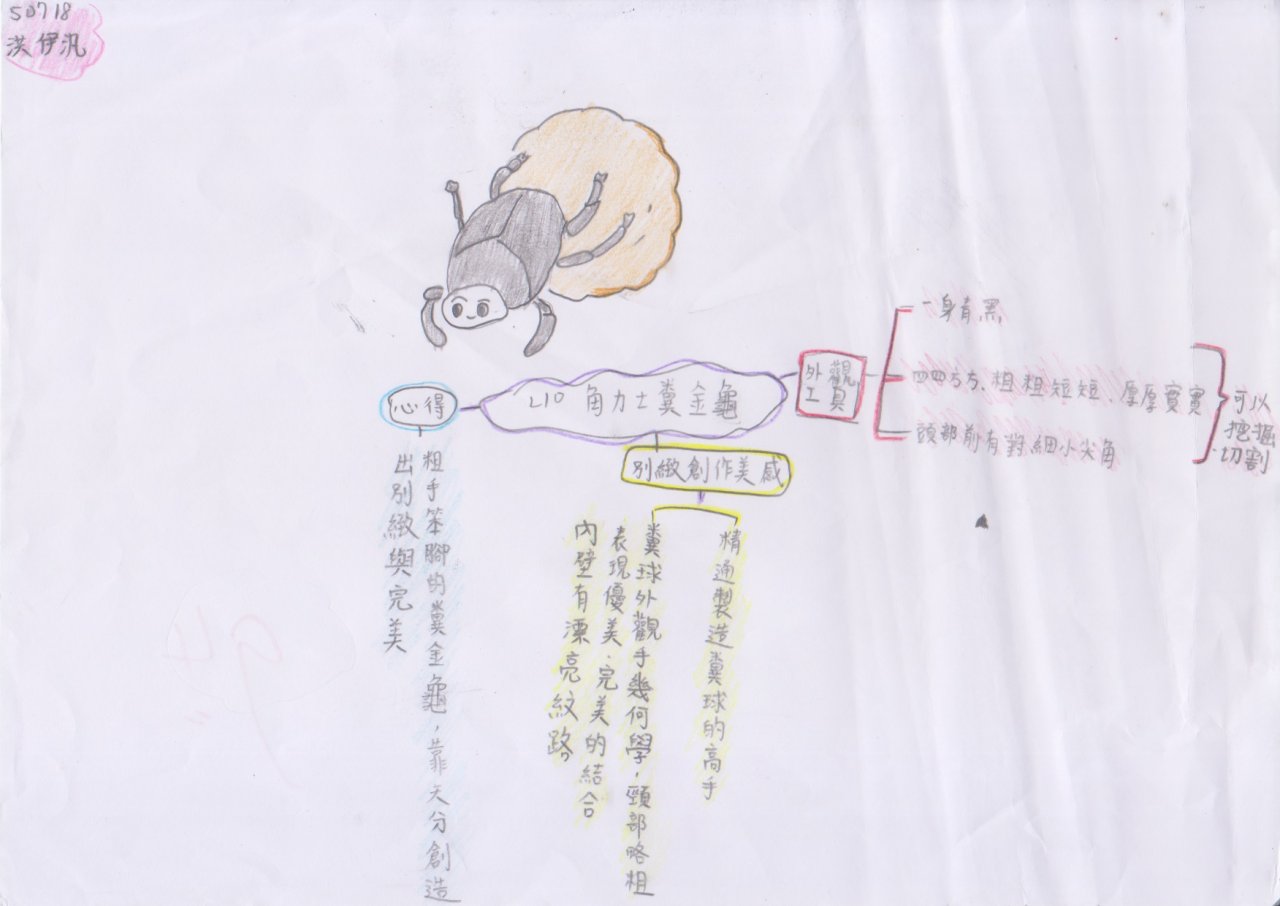 50718
洪伊汎
L10 角力士糞金龜
外觀
工具
一身有黑
四四方方、粗粗短短、厚厚實實
頭部前有對細小尖角
可以
挖掘
切割
別緻創作美感
精通製造糞球的高手
糞球外觀手幾何學，頸部略粗
表現優美、完美的結合
內壁有漂亮紋路。
心得
粗手笨腳的糞金龜，靠天分創造
出別緻與完美